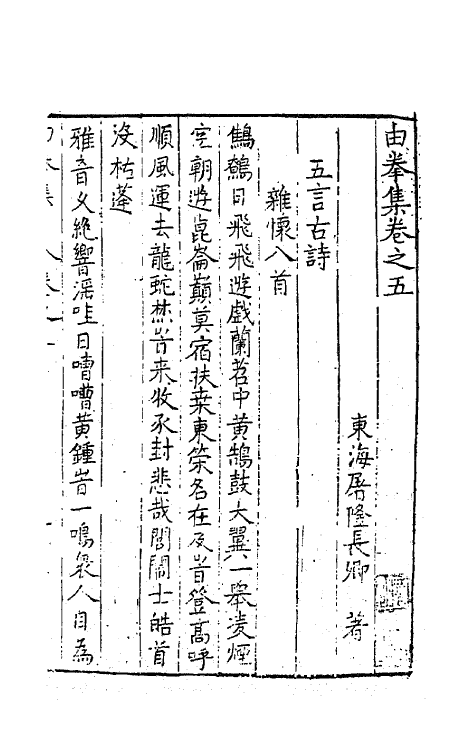 由拳集卷之五
東海屠隆長卿 著
五言古詩
雜懷八首
鷦鷯日飛飛遊戲蘭苕中黄鵠鼓大翼一舉凌煙
空朝遊崑崙巔莫宿扶桒東榮名在及峕登髙呼
順風運去龍蛇蟄峕来牧豕封悲哉閭閻士皓首
沒枯蓬
雅音久絶響滛哇日嘈嘈黄鍾峕一鳴衆人自為